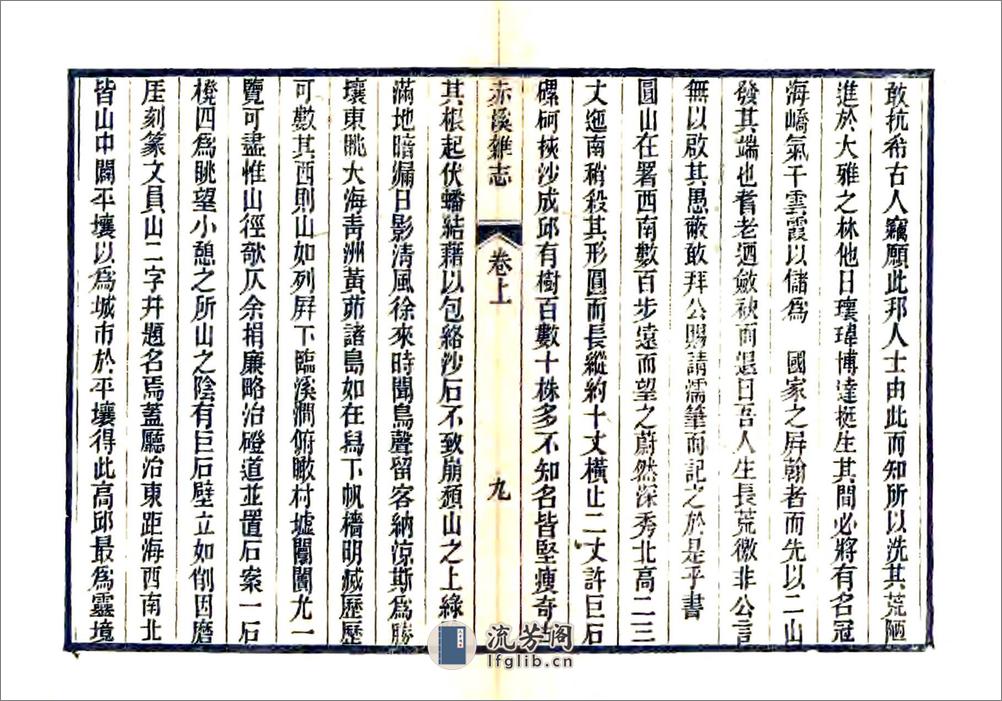 敢抗希古人竊願此邦人士由此而知所以洗其荒陋
進於大雅之林他日瓌瑋博達挺生其間必將有名冠
海嶠氣干雲霞以儲為　國家之屏翰者而先以二山
發其端也耆老迺斂袂而退曰吾人生長荒徼非公言
無以啟其愚蔽敢拜公賜請濡筆而記之於是乎書
圓山在署西南數百步遠而望之蔚然深秀北高二三
丈迤南稍殺其形圓而長縱約十丈橫止二丈許巨石
磥砢挾沙成邱有樹百數十株多不知名皆堅瘦奇
赤溪雜志
卷上
九
其根起伏蟠結藉以包絡沙石不致崩頹山之上綠
滿地暗漏日影清風徐來時聞鳥聲留客納涼斯為勝
壤東眺大海青洲黃茆諸島如在舄下帆檣明滅歷歷
可數其西則山如列屏下臨溪澗俯瞰村墟闤闠尤一
覽可盡惟山徑欹仄余捐廉略治磴道並置石案一石
櫈四為眺望小憩之所山之陰有巨石壁立如削因磨
厓刻篆文員山二字幷題名焉蓋廳治東距海西南北
皆山中闢平壤以為城市於平壤得此高邱最為靈境
流芳阁
lfglib.cn